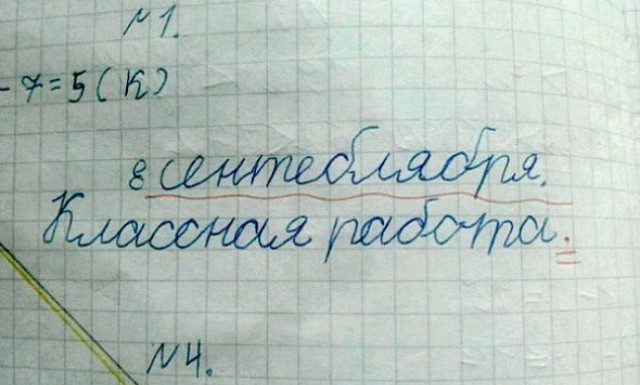 N1.
- 7=5(К)
8 сентеблября.
Классная работа.
N4.